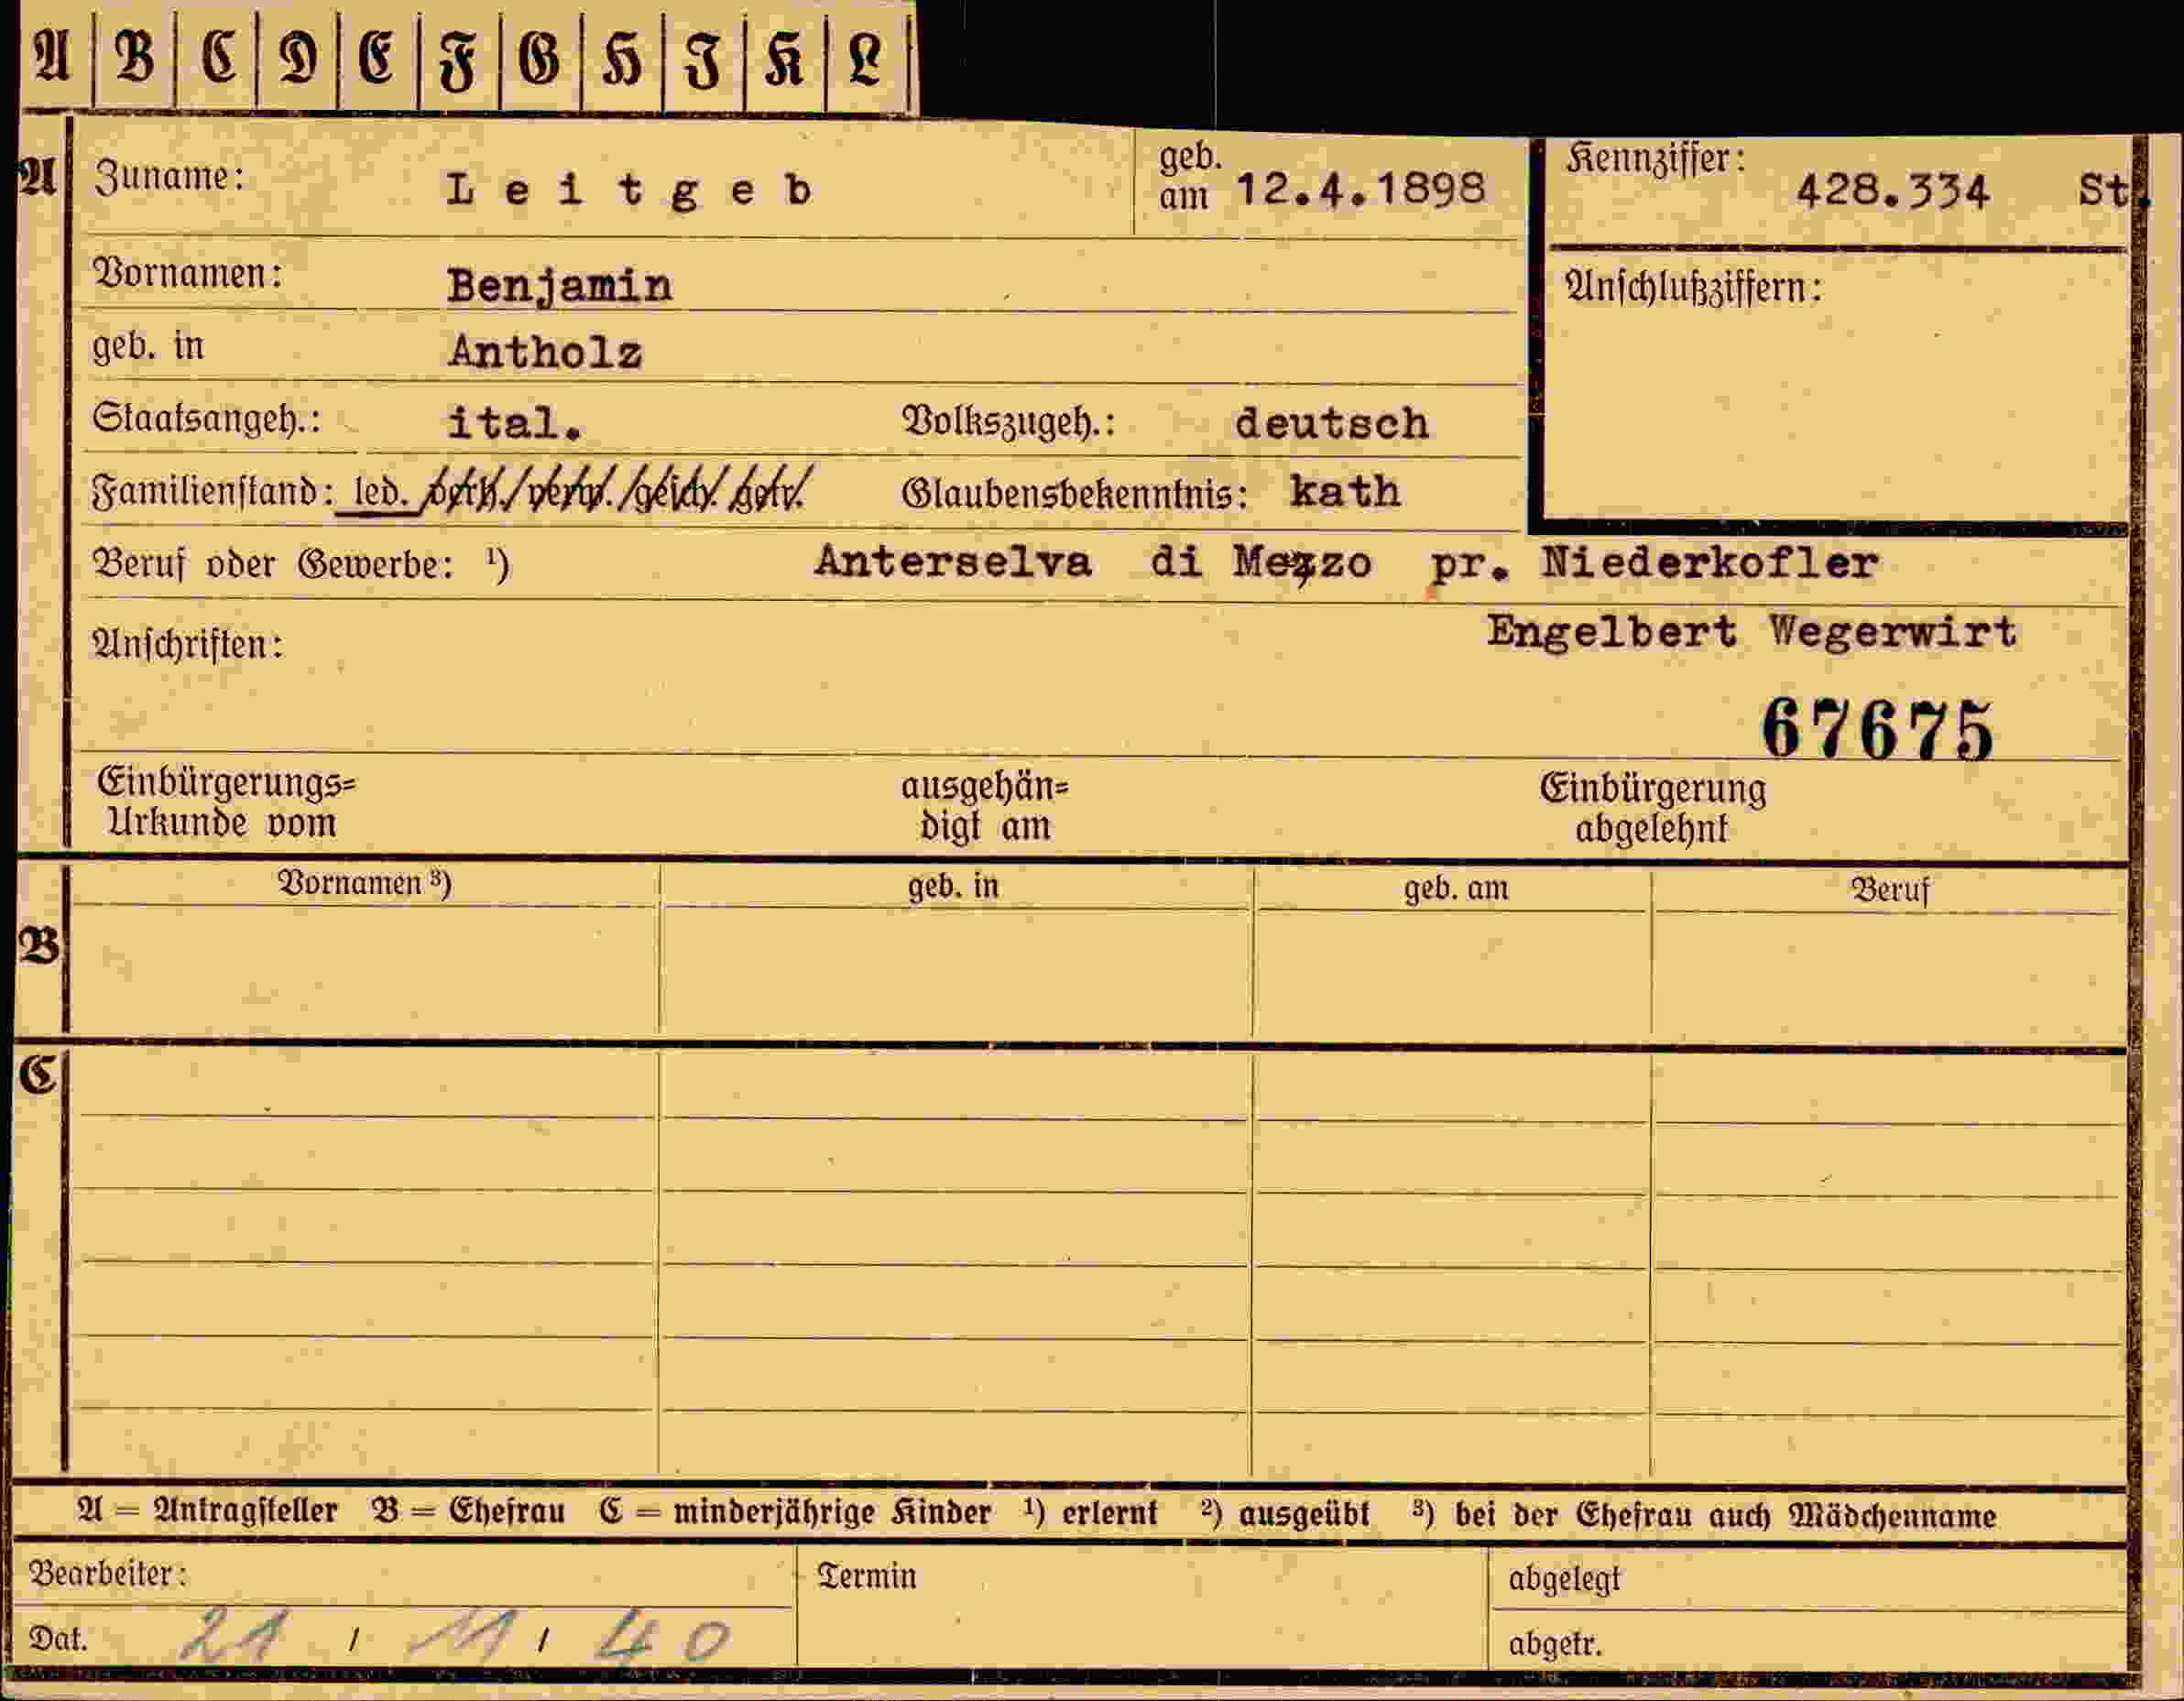 A B C D E F G H I K L
A Zuname: Leitgeb geb. am 12.4.1898 Kennziffer: 428.334 St.
Vornamen: Benjamin Anschlußziffern:
geb. in Antholz
Staatsangeh.: ital. Volkszugeh.: deutsch
Familienstand: led. /verh./verw./gesch./getr. Glaubensbekenntnis: kath
Beruf oder Gewerbe: ¹) Anterselva di Mezzo pr. Niederkofler
Anschriften: Engelbert Wegerwirt
67675
Einbürgerungs= ausgehän= Einbürgerung
Urkunde vom digt am abgelehnt
Vornamen ³) geb. in geb. am Beruf
B
C
A = Antragsteller B = Ehefrau C = minderjährige Kinder ¹) erlernt ²) ausgeübt ³) bei der Ehefrau auch Mädchenname
Bearbeiter: Termin abgelegt
Dat. 21 / 11 / 40 abgetr.